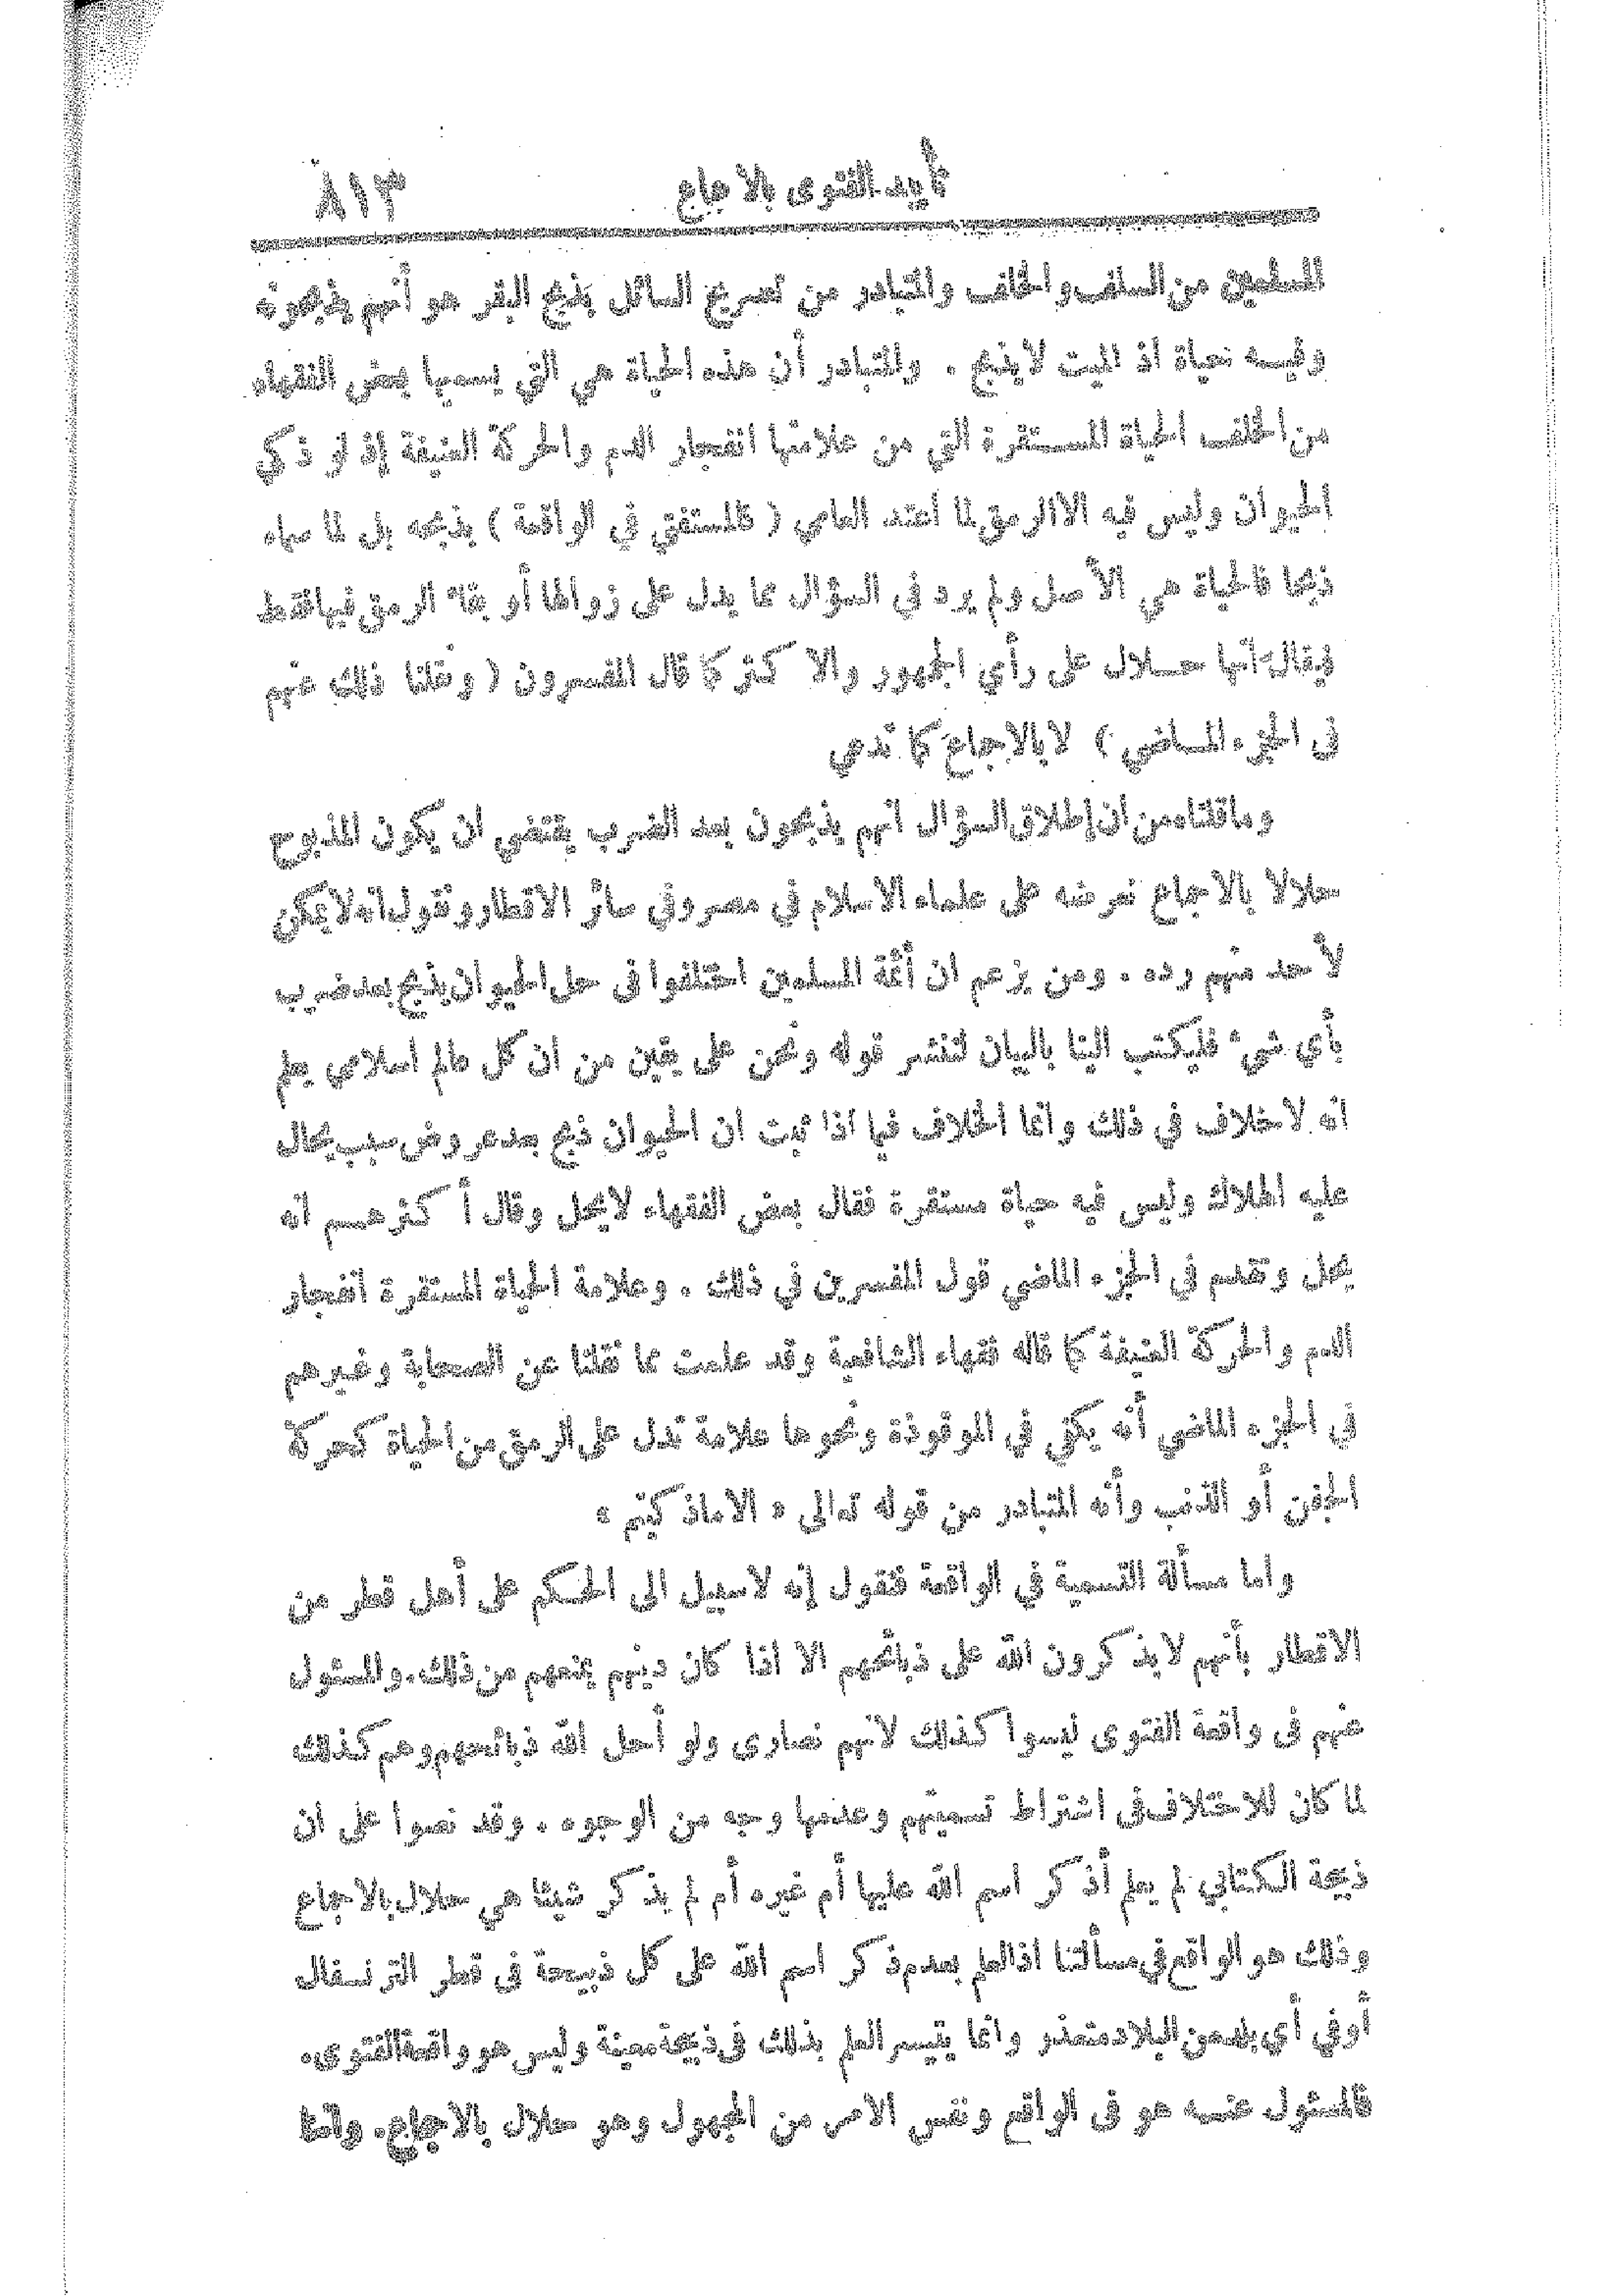 تأييد الفتوى بالاجماع ٨١٣
المسلمين من السلف والخلف والمتبادر من تصريح السائل بذبح البقر هو أنهم يذبحونه
وفيه حياة اذ الميت لا يذبح . والمتبادر أن هذه الحياة هي التي يسميها بعض الفقهاء
من الخلف الحياة المستقرة التي من علامتها انفجار الدم والحركة العنيفة إذ لو ذكي
الحيوان وليس فيه الا الرمق لما اعتد العامي ( كالمستفتي في الواقعة ) بذبحه بل لما سماه
ذبحا فالحياة هي الأصل ولم يرد في السؤال مما يدل على زوالها أو بقاء الرمق فيها فقط
فيقال انها حلال على رأي الجمهور والاكثر كما قال المفسرون ( ونقلنا ذلك عنهم
في الجزء الماضي ) لا بالاجماع كما تدعي
وما قلناه من ان إطلاق السؤال انهم يذبحون بعد الضرب يقتضي ان يكون المذبوح
حلالا بالاجماع نعرضه على علماء الاسلام في مصر وفي سائر الاقطار ونقول انه لا يمكن
لأحد منهم رده . ومن يزعم ان أئمة المسلمين اختلفوا في حل الحيوان يذبح بعد ضرب
بأي شيء فليكتب الينا بالبيان لننشر قوله ونحن على يقين من ان كل عالم اسلامي يعلم
انه لا خلاف في ذلك وانما الخلاف فيما اذا ثبت ان الحيوان ذبح بعد عروض سبب يحال
عليه الهلاك وليس فيه حياة مستقرة فقال بعض الفقهاء لا يحل وقال أكثرهم انه
يحل وتقدم في الجزء الماضي قول المفسرين في ذلك . وعلامة الحياة المستقرة انفجار
الدم والحركة العنيفة كما قاله فقهاء الشافعية وقد علمت مما نقلنا عن الصحابة وغيرهم
في الجزء الماضي أنه يكفي في الموقوذة ونحوها علامة تدل على الرمق من الحياة كحركة
الجفن أو الذنب وأنه المتبادر من قوله تعالى « الا ما ذكيتم »
واما مسألة التسمية في الواقعة فنقول إنه لا سبيل الى الحكم على أهل قطر من
الاقطار بأنهم لا يذكرون الله على ذبائحهم الا اذا كان دينهم يمنعهم من ذلك . والمسئول
عنهم في واقعة الفتوى ليسوا كذلك لانهم نصارى ولو أحل الله ذبائحهم وهم كذلك
لما كان للاختلاف في اشتراط تسميتهم وعدمها وجه من الوجوه . وقد نصوا على ان
ذبيحة الكتابي لم يعلم أذكر اسم الله عليها أم غيره أم لم يذكر شيئا هي حلال بالاجماع
وذلك هو الواقع في مسألتنا اذ العلم بعدم ذكر اسم الله على كل ذبيحة في قطر الترنسفال
أو في أي بلد من البلاد متعذر وانما يتيسر العلم بذلك في ذبيحة معينة وليس هو واقعة الفتوى.
فالمسئول عنه هو في الواقع ونفس الامر من المجهول وهو حلال بالاجماع . وانما